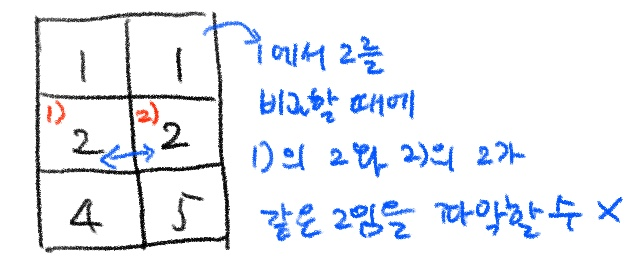 1 1
1에서 2를
비교할 때에
1) 2 2) 2
1)의 2와 2)의 2가
4 5
같은 2임을 파악할 수 X